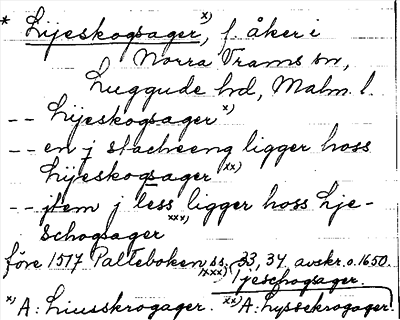 * Lijeskogsager, x) f. åker i
Norra Vrams sn,
Luggude hd, Malm. l.
-- Lijeskogsager x)
-- en j stacheeng ligger hoss
Lijeskogsager xx)
-- jtem j less ligger hoss Lje-
schogsager xxx)
före 1517 Palteboken ss. 33, 34 avskr. o. 1650.
xxx) Ijeschogsager.
x) A: Liusskrogager. xx) A: Lyssekrogager.